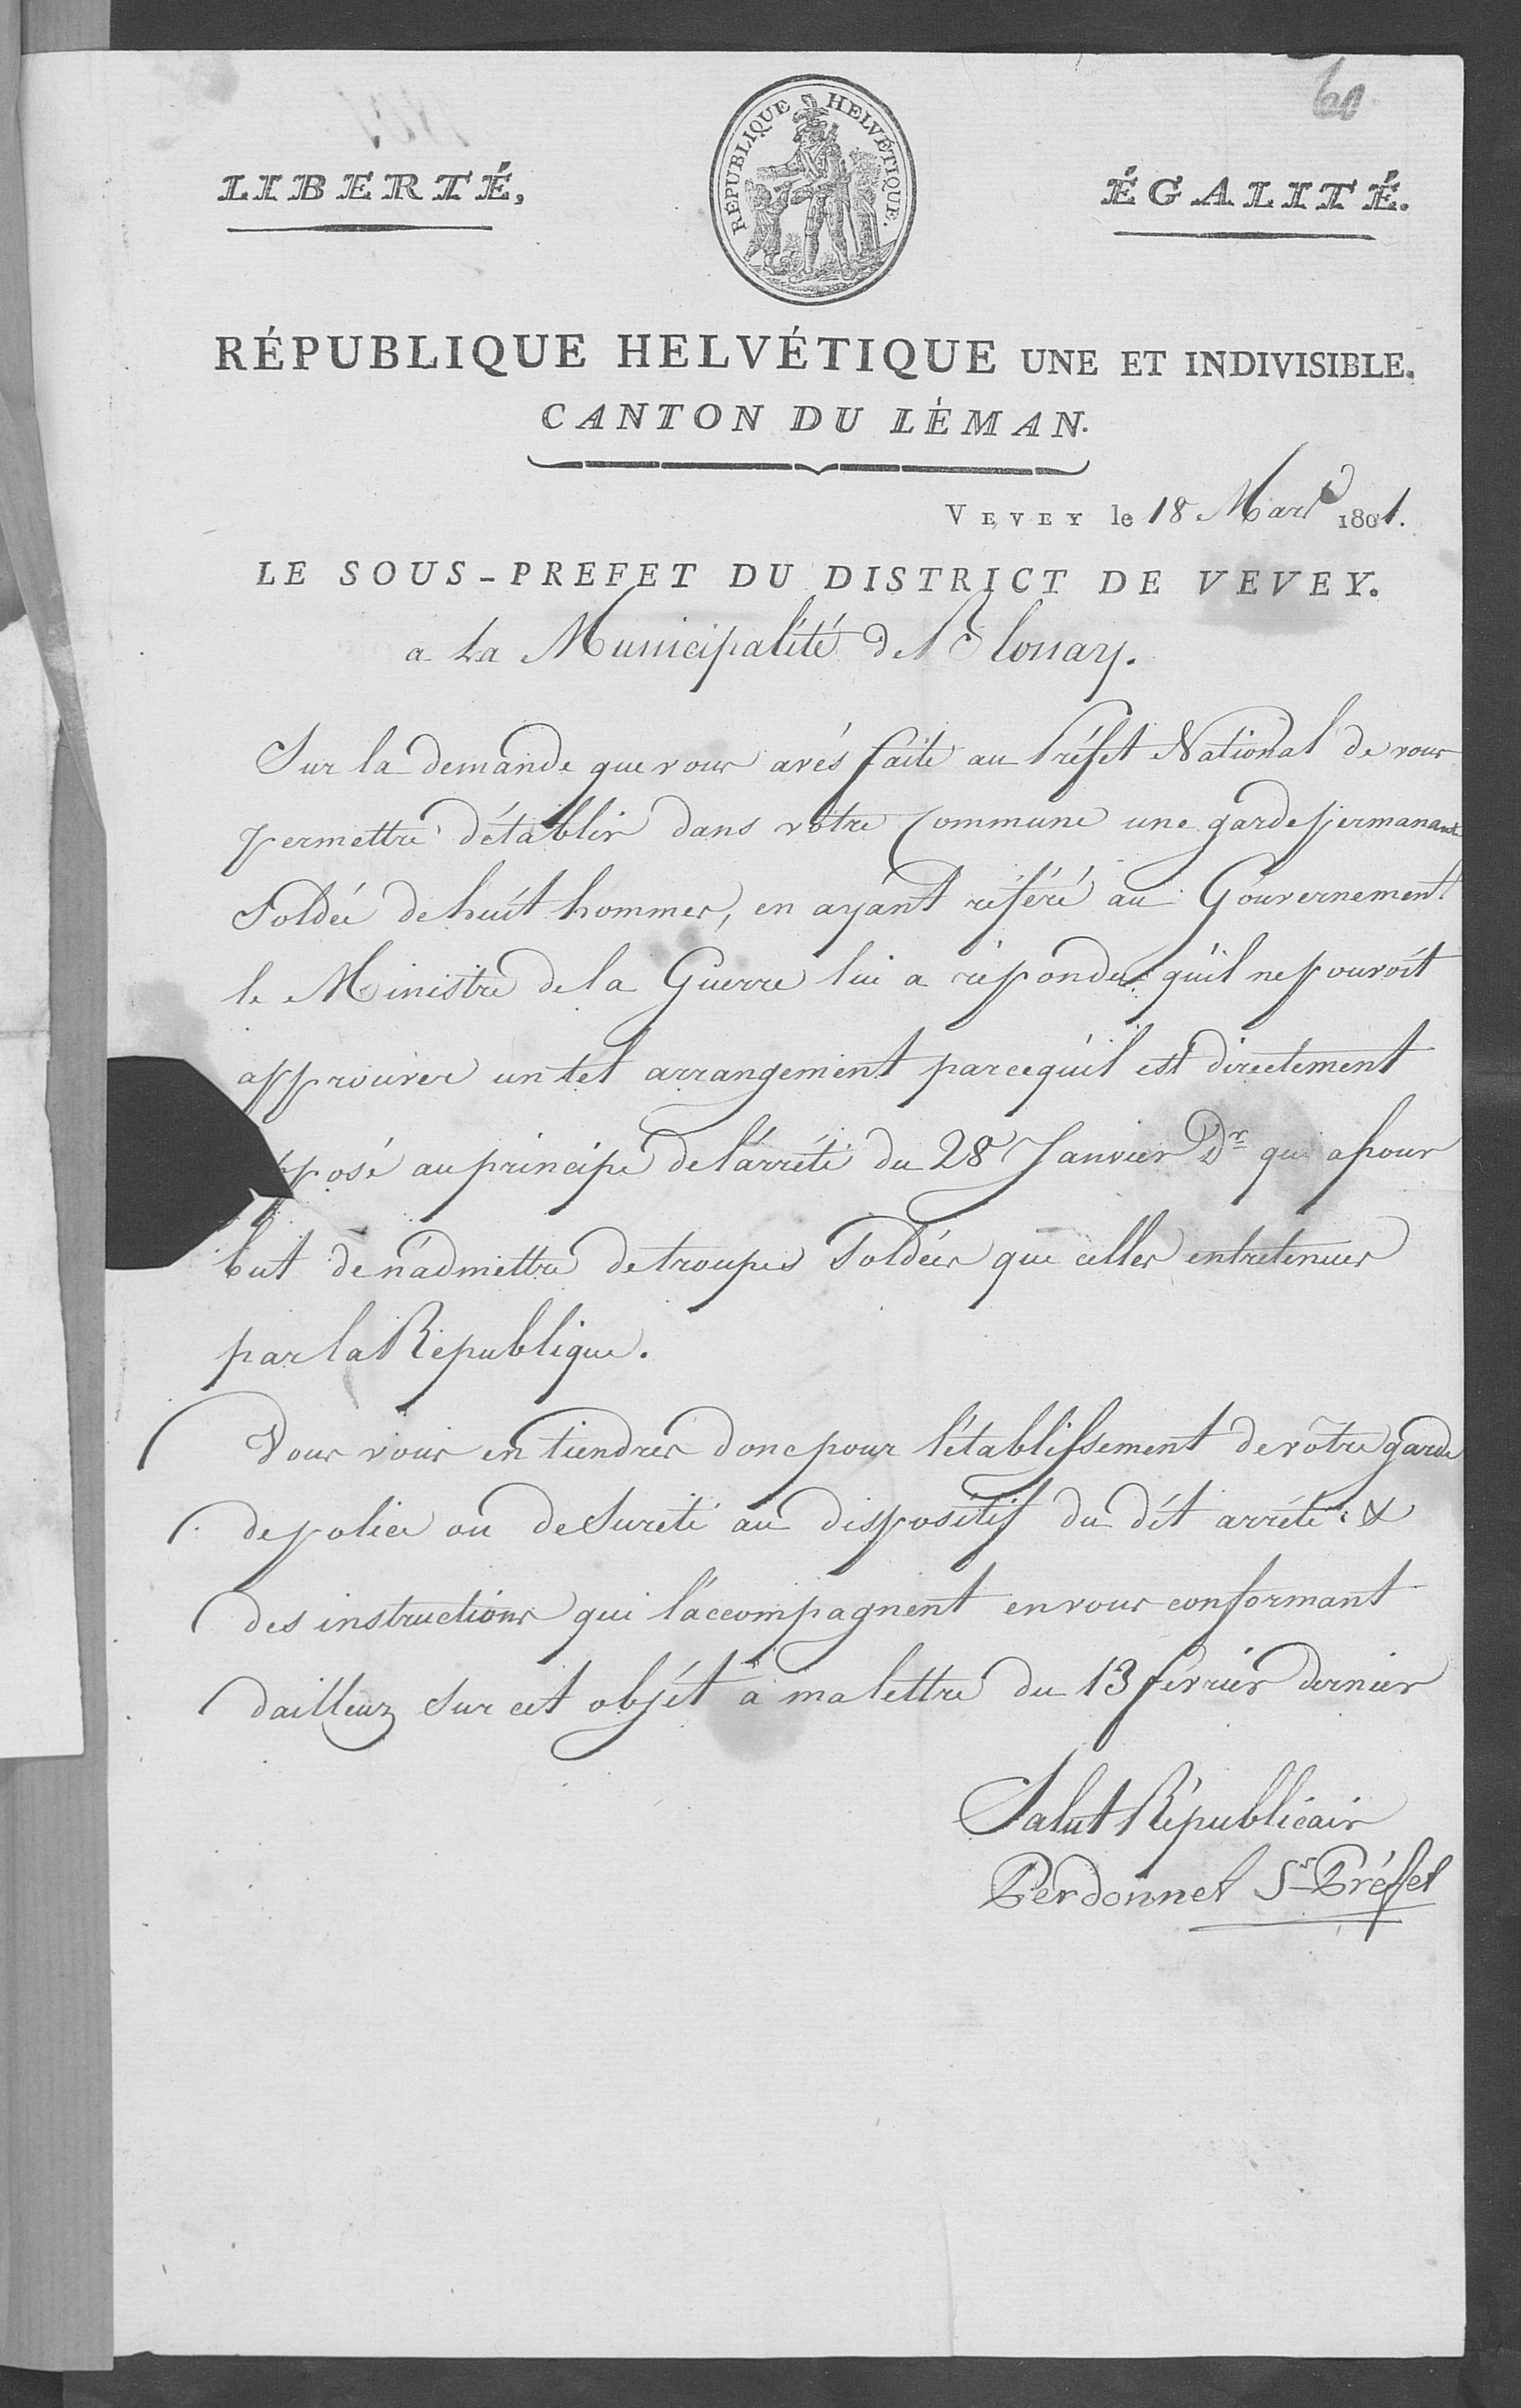 60
LIBERTÉ,
RÉPUBLIQUE HELVÉTIQUE.
ÉGALITÉ.
RÉPUBLIQUE HELVÉTIQUE UNE ET INDIVISIBLE.
CANTON DU LÉMAN.
VEVEY le 18 Mars 1801.
LE SOUS-PREFET DU DISTRICT DE VEVEY.
a La Municipalité de Blonay.
Sur la demande que vous avés faite au Préfet National de vous
permettre d'établir dans vôtre Commune une garde permanante
Soldée de huit hommes, en ayant référé au Gouvernement
le Ministre de la Guerre lui a répondu qu'il ne pouvoit
approuver un tel arrangement parcequ'il est directement
pposé au principe de l'arrété du 28 Janvier Dr qui a pour
but de n'admettre de troupes Soldées que celles entretenues
par la Republique.
Vous vous en tiendres donc pour l'établissement de vôtre garde
de police ou de Sureté au dispositif du dit arrété &
des instructions qui l'accompagnent en vous conformant
dailleurs Sur cet objét à ma lettre du 13 février dernier
Salut Républicain
Perdonnet Ss Préffet